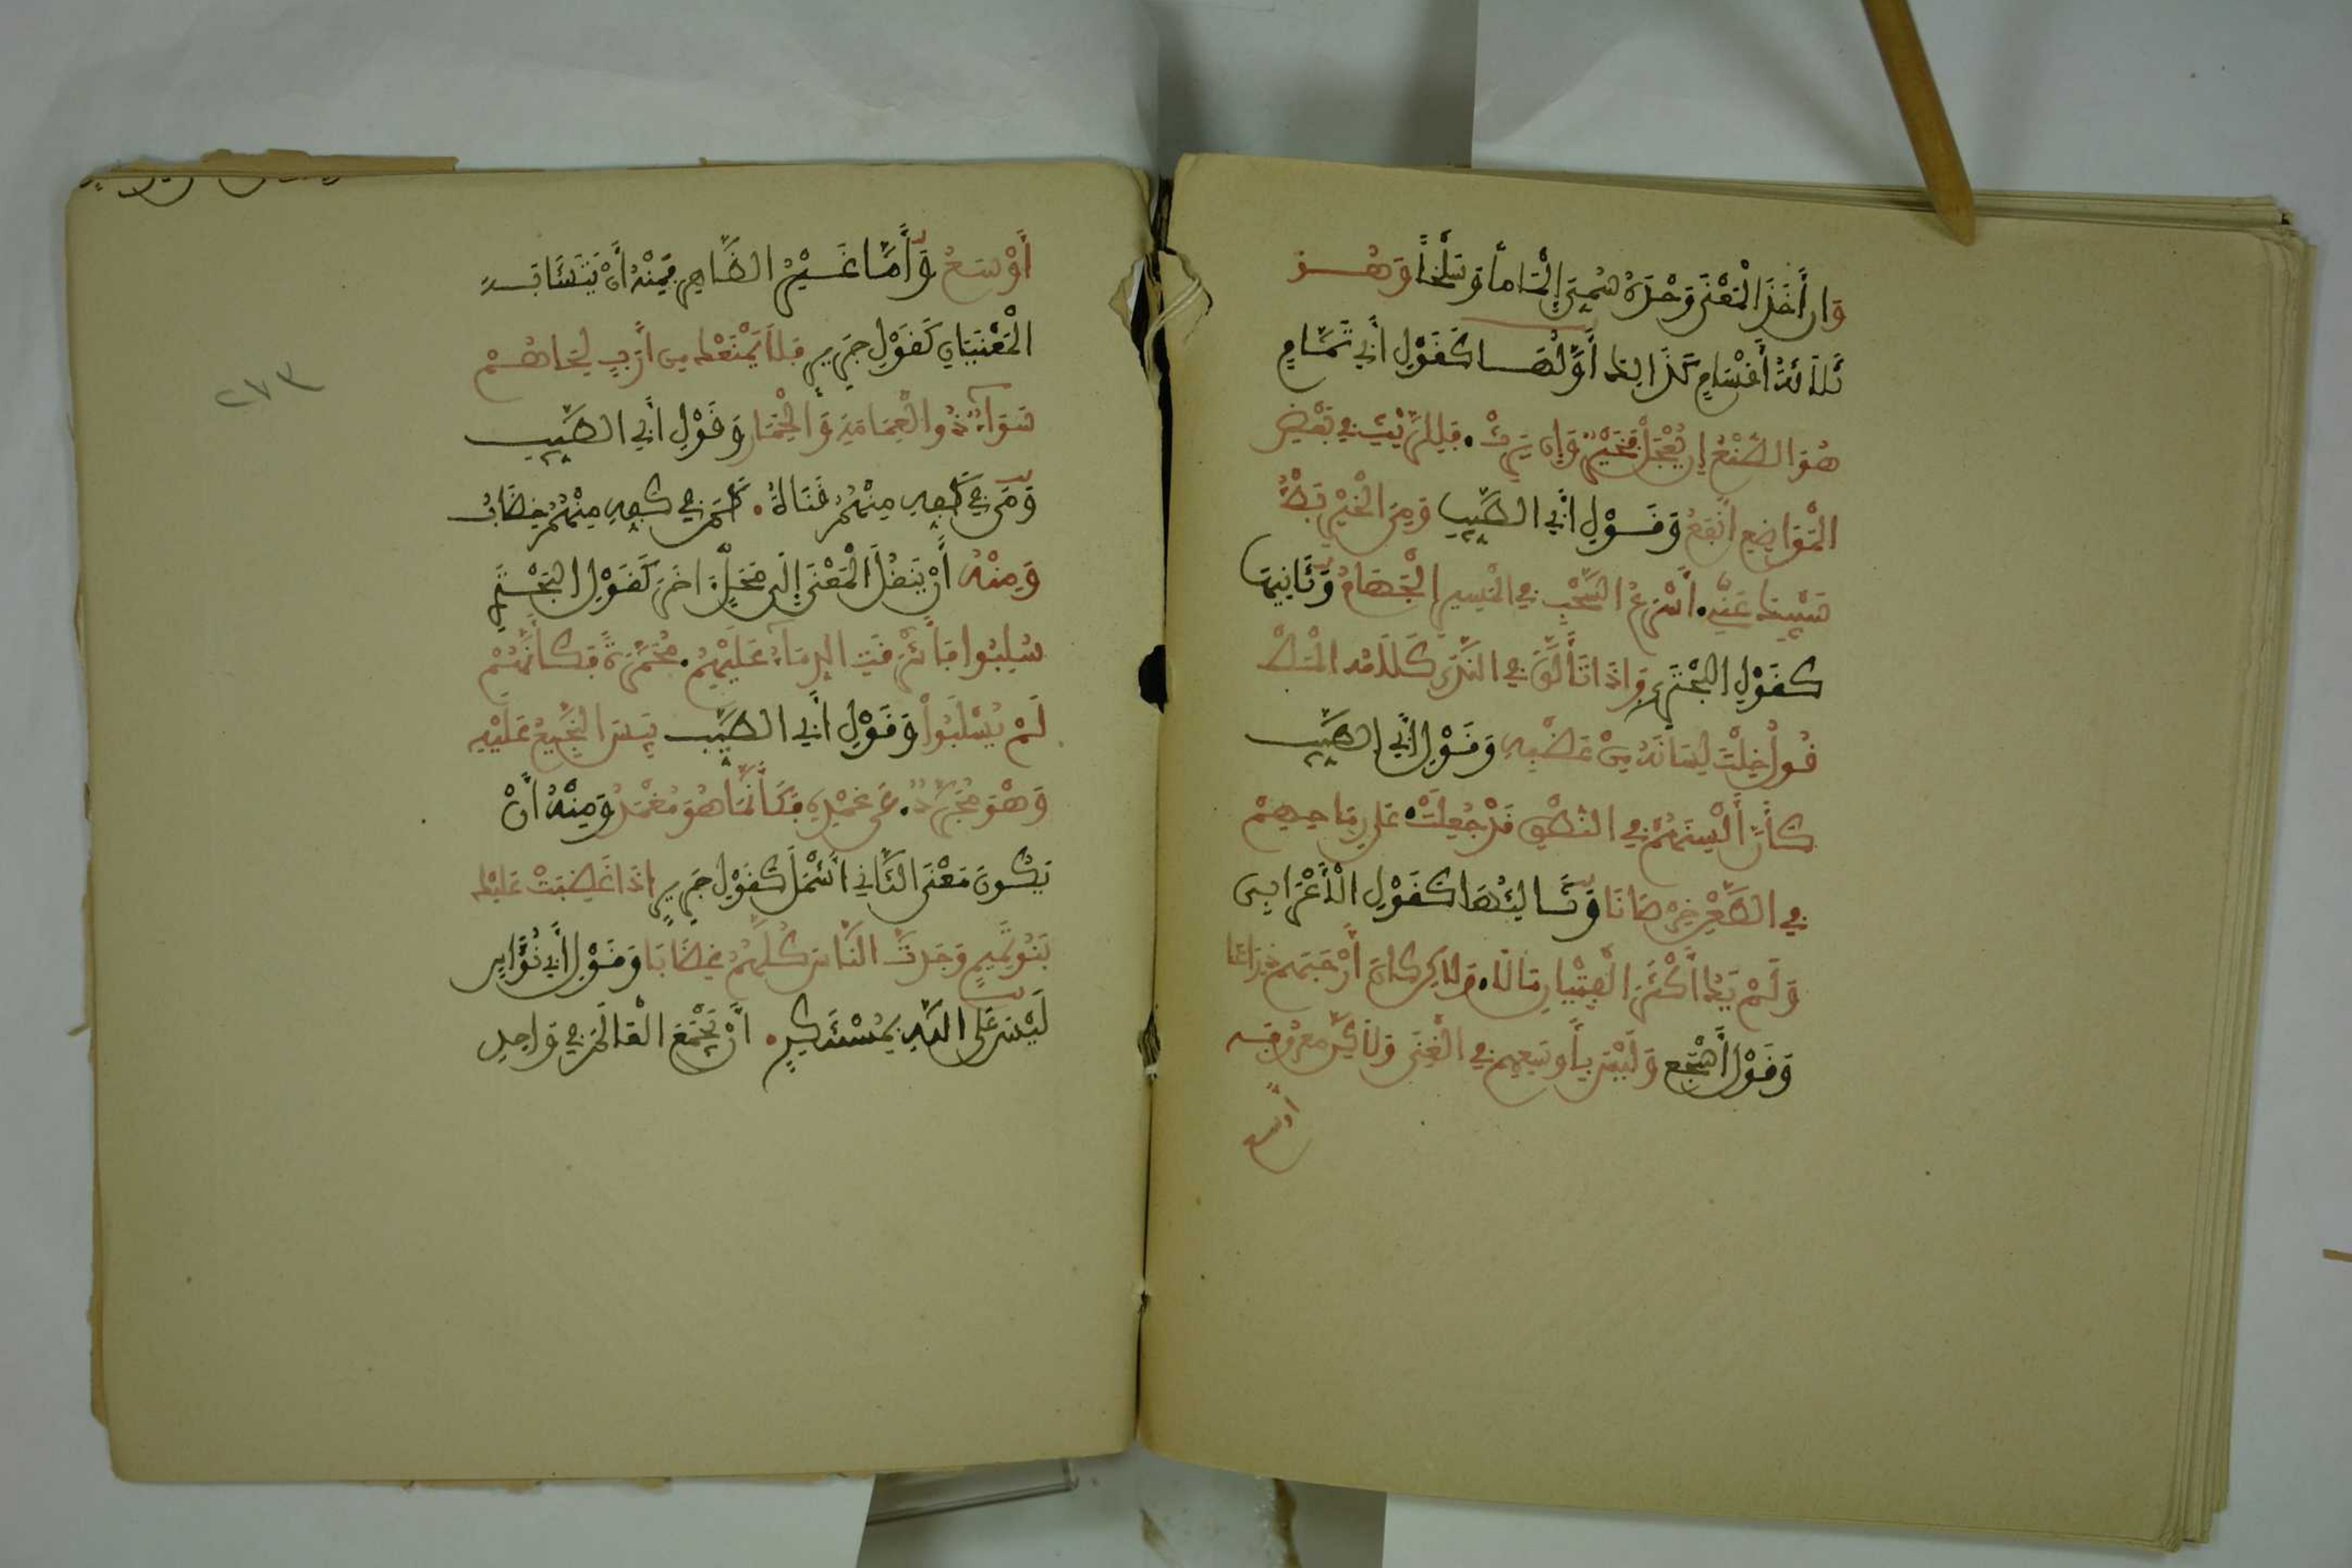 وَإِن أَخَذَ الْمَعْنَى وَحْدَهُ سُمِّيَ إِلْمَاماً وَسَلْخاً وَهُوَ
ثَلَاثَةُ أَقْسَامٍ كَذَالِكَ أَوَّلُهَا كَقَوْلِ أَبِي تَمَّامٍ
هُوَ الصُّنْعُ إِن يُعْجَلْ فَخَيْرٌ وَإِن يَرِثْ. فَلِلرَّيْثُ فِي بَعْضِ
الْمَوَاضِعِ أَنْفَعُ وَقَوْلِ أَبِي الطَّيِّبِ وَمِنَ الْخَيْرِ بَطْءُ
سَيْبِكَ عَنِّي. أَسْرَعُ السُّحْبِ فِي الْمَسِيرِ الْجَهَامُ وَثَانِيهَا
كَقَوْلِ الْبُحْتُرِي وَإِذَا تَأَلَّقَ فِي النَّدَى كَلَامُهُ الْمَصْ
قُولُ خِلْتَ لِسَانَهُ مِنْ عَضْبِهِ وَقَوْلِ أَبِي الطَّيِّبِ
كَأَنَّ أَلْسِنَهُمْ فِي النُّطْقِ قَدْ جُعِلَتْ. عَلَى رِمَاحِهِمْ
فِي الطَّعْنِ خِرْصَانَا وَثَالِثُهَا كَقَوْلِ الْأَعْرَابِي
وَلَمْ يَكُ أَكْثَرَ الْفِتْيَانِ مَالًا. وَلَاكِن كَانَ أَرْحَبَهُمْ ذِرَاعًا
وَقَوْلِ أَشْجَع وَلَيْسَ بِأَوْسَعِهِمْ فِي الْغِنَى وَلَاكِنَّ مَعْرُوفَهُ
أوسع
أَوْسَعُ وَأَمَّا غَيْرُ الظَّاهِرِ فَمِنْهُ أَنْ يَتَشَابَهَ
الْمَعْنَيَانِ كَقَوْلِ جَرِيرٍ فَلَا يَمْنَعْكَ مِن أَرَبٍ لِحَاهُمْ
سَوَاءٌ ذُو الْعِمَامَةِ وَالْخِمَارِ وَقَوْلِ أَبِي الطَّيِّبِ
وَمَن فِي كَفِّهِ مِنْهُمْ قَنَاةٌ. كَمَن فِي كَفِّهِ مِنْهُمْ خِضَابُ
وَمِنْهُ أَنْ يَنْقُلَ الْمَعْنَى إِلَى مَحَلٍّ آخَرَ كَقَوْلِ الْبُحْتُرِي
سُلِبُوا فَأَشْرَقَتِ الدِّمَاءُ عَلَيْهِمُ. مُحْمَرَّةً فَكَأَنَّهُمْ
لَمْ يُسْلَبُوا وَقَوْلِ أَبِي الطَّيِّبِ يَبِسَ النَّجِيعُ عَلَيْهِ
وَهْوَ مُجَرَّدٌ. عَن غِمْدِهِ فَكَأَنَّمَا هُوَ مُغْمَدُ وَمِنْهُ أَنْ
يَكُونَ مَعْنَى الثَّانِي أَشْمَلَ كَقَوْلِ جَرِيرٍ إِذَا غَضِبَتْ عَلَيْكَ
بَنُو تَمِيمٍ وَجَدتَّ النَّاسَ كُلَّهُمُ غِضَابَا وَقَوْلِ أَبِي نُوَّاسٍ
لَيْسَ عَلَى اللهِ بِمُسْتَنْكَرٍ. أَنْ يَجْمَعَ الْعَالَمَ فِي وَاحِدِ
٢٧٣